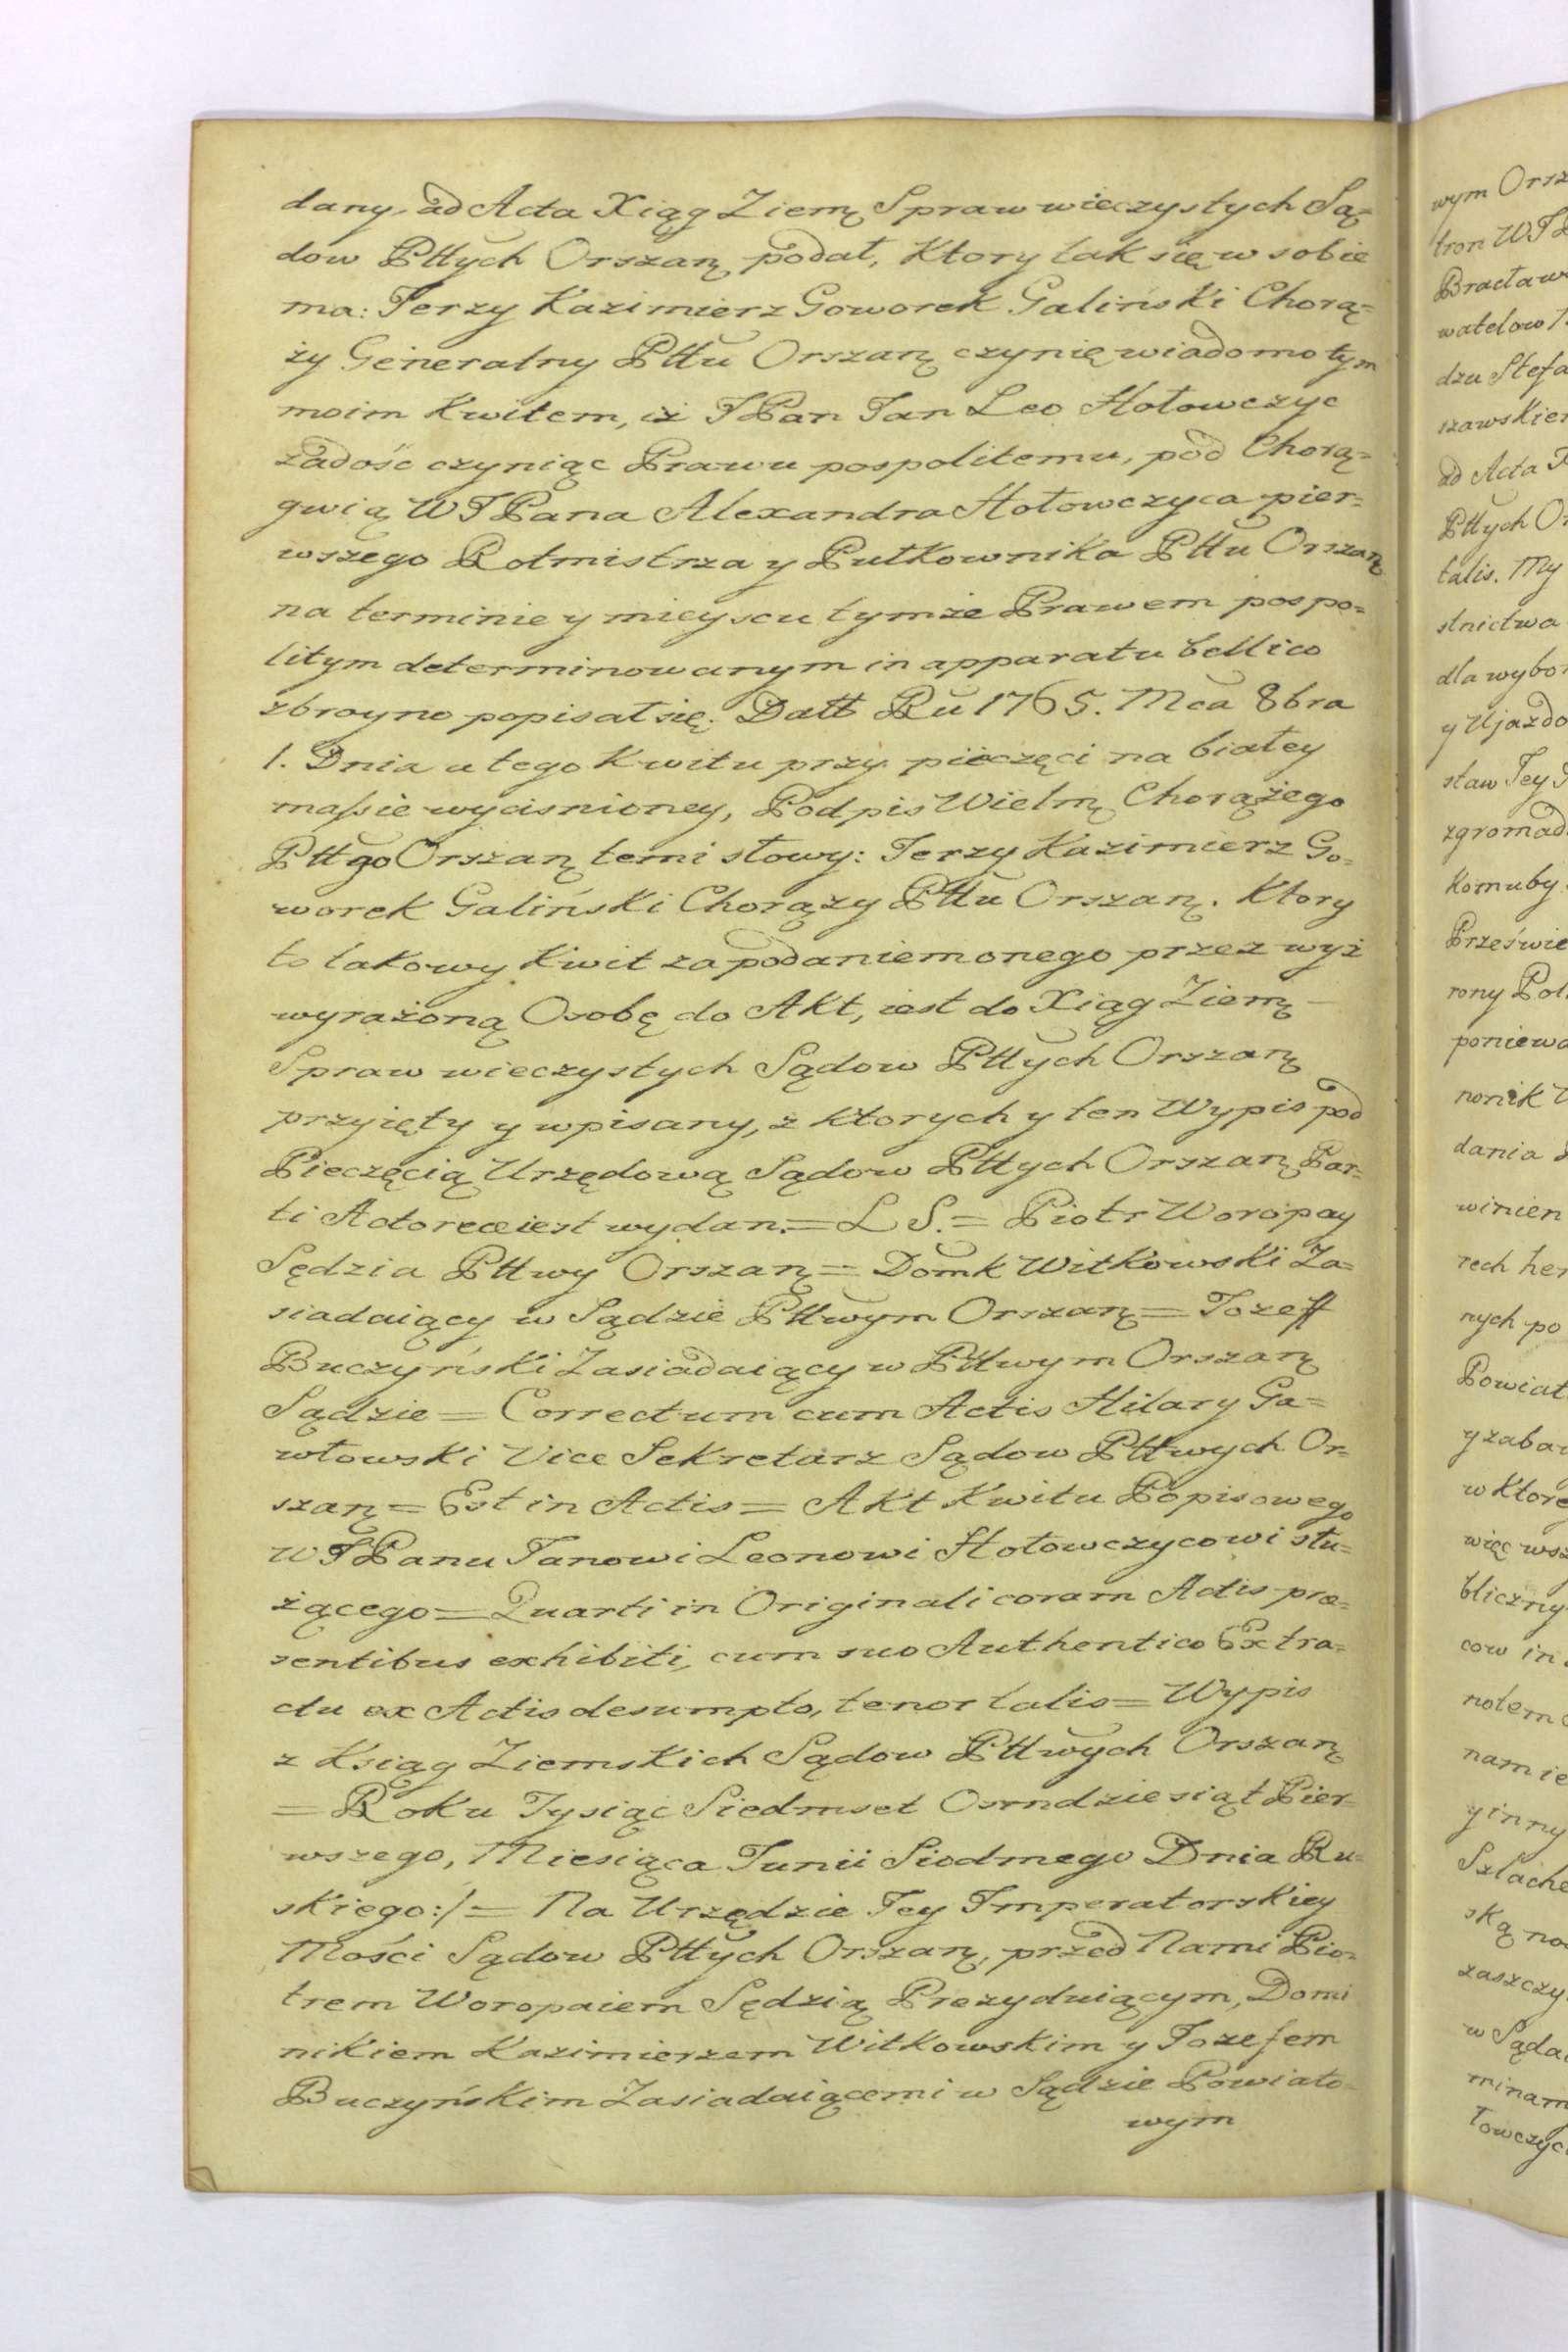 dany, ad Acta Xiąg Ziemą Spraw wieczystych Są=
dow Pttych Orszaną podał, Ktory tak się w sobie
ma: Jerzy Kazimierz Goworek Galiński Chorą=
ży Generalny Pttu Orszaną czynię wiadomo tym
moim Kwitem, iż JPan Jan Leo Hołowczyc
zadość czyniąc Prawu pospolitemu, pod Chorą=
gwią WJPana Alexandra Hołowczyca pier=
wszego Rotmistrza y Pułkownika Pttu Orszaną
na terminie y mieyscu tymże Prawem pospo=
litym determinowanym in apparatu bellico
zbroyno popisał się. Datt Ru 1765. Mca 8bra
1. Dnia u tego Kwitu przy pieczęci na białey
massie wycisnioney, Podpis Wielmą Chorążego
Pttgo Orszaną temi słowy: Jerzy Kazimierz Go=
worek Galiński Chorąży Pttu Orszaną. Ktory
to takowy Kwit za podaniem onego przez wyż
wyrażoną Osobę do Akt, iest do Xiąg Ziemą —
Spraw wieczystych Sądow Pttych Orszaną
przyięty y wpisany, z Ktorych y ten Wypis pod
Pieczęcią Urzędową Sądow Pttych Orszaną Par=
ti Actoreae iest wydan. = L S. = Piotr Woropay
Sędzia Pttwy Orszaną = Domk Witkowski Za=
siadaiący w Sądzie Pttwym Orszaną = Jozeff
Buczyński Zasiadaiący w Pttwym Orszaną
Sądzie = Correctum cum Actis Hilary Ga=
włowski Vice Sekretarz Sądow Pttwych Or=
szaną = Est in Actis = Akt Kwitu Popisowego
WJPanu Janowi Leonowi Hołowczycowi słu=
żącego = Quarti in Originali coram Actis præ=
sentibus exhibiti, cum suo Authentico Extra=
ctu ex Actis desumpto, tenor talis = Wypis
z Ksiąg Ziemskich Sądow Pttwych Orszaną
= Roku Tysiąc Siedmset Osmdziesiąt Pier=
wszego, Miesiąca Junii Siodmego Dnia Ru=
skiego:/ = Na Urzędzie Jey Imperatorskiey
Mości Sądow Pttych Orszaną, przed Nami Pio=
trem Woropaiem Sędzią Prezyduiącym, Domi
nikiem Kazimierzem Witkowskim y Jozefem
Buczyńskim Zasiadaiącemi w Sądzie Powiato=
wym
wym Orsz
tron WJP
Bracław
watelow
dzu Stefa
szawskie
ad Acta
Pttych Or
talis. My
stnictwa
dla wybor
y Ujazdo
sław Jey
zgromad
Komuby
Prześwie
rony Pol
poniewa
nonik
dania
winien
rech her
nych po
Powiat
y zabaw
w Ktore
więc wsz
bliczny
cow in
notem
namie
y inny
Szlache
ską no
zaszczy
w Sąda
minam
łowczyc